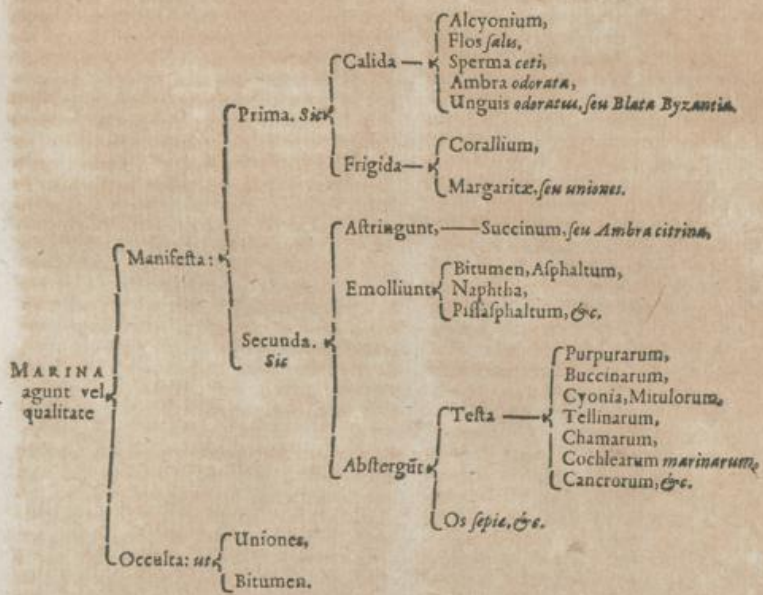 MARINA
agunt vel
qualitate
Manifeſta:
Prima. Sic
Calida
Alcyonium,
Flos ſalis,
Sperma ceti,
Ambra odorata,
Unguis odoratus, ſeu Blata Byzantia.
Frigida
Corallium,
Margaritæ, ſeu uniones.
Secunda.
Sic
Aſtringunt, Succinum, ſeu Ambra citrina,
Emolliunt
Bitumen, Aſphaltum,
Naphtha,
Piſſaſphaltum, &c.
Abſtergūt
Teſta
Purpurarum,
Buccinarum,
Cyonia, Mitulorum,
Tellinarum,
Chamarum,
Cochlearum marinarum,
Cancrorum, &c.
Os ſepiæ, &c.
Occulta: ut
Uniones,
Bitumen.